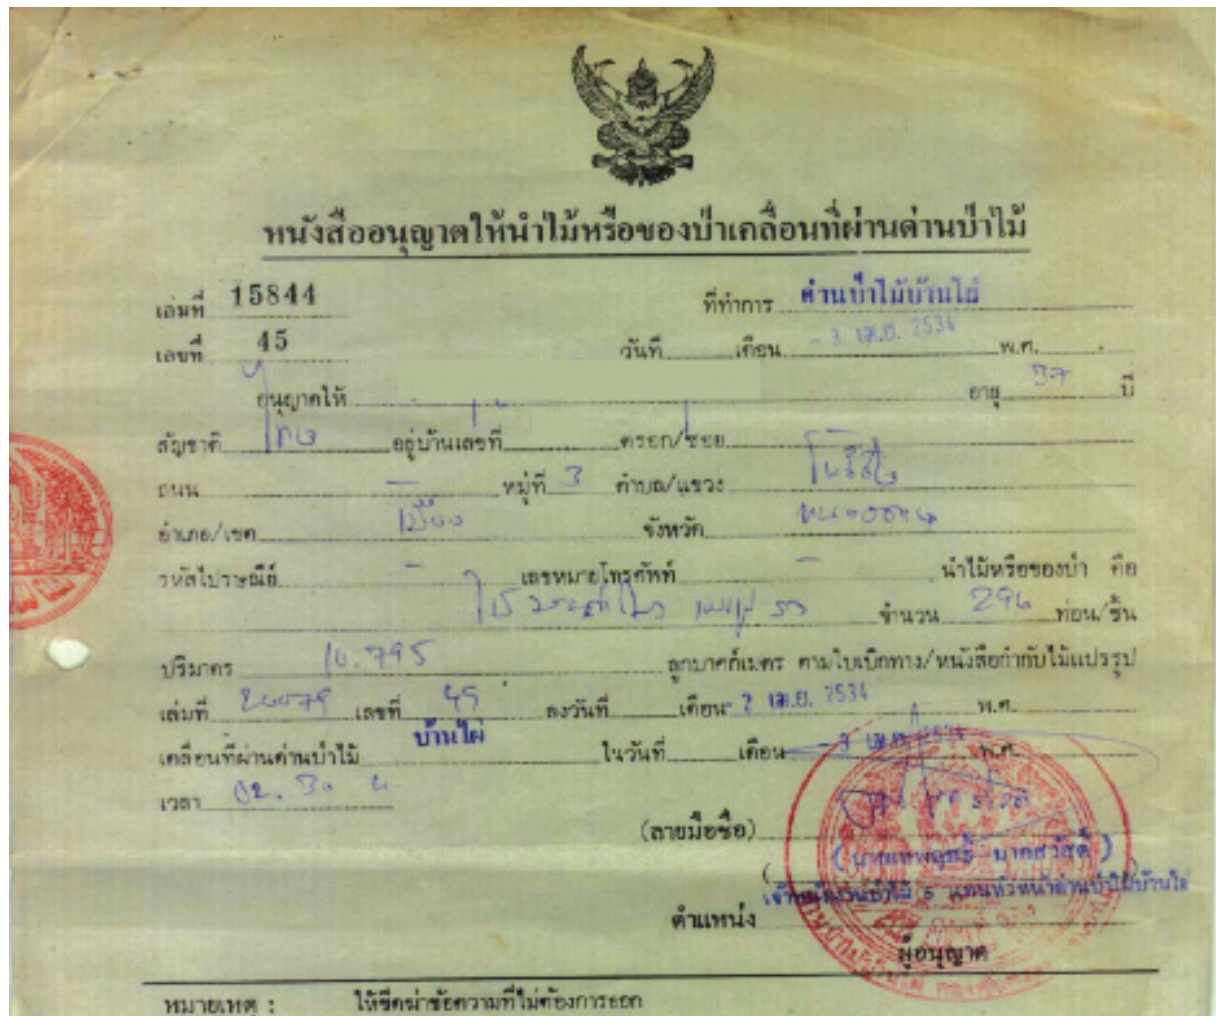 หนังสืออนุญาตให้นำไม้หรือของป่าเคลื่อนที่ผ่านด่านป่าไม้
เล่มที่ 15844 ที่ทำการ ด่านป่าไม้บ้านไผ่
เลขที่ 45 วันที่ เดือน - 3 เม.ย. 2534 พ.ศ.
อนุญาตให้ อายุ 37 ปี
สัญชาติ ไทย อยู่บ้านเลขที่ ตรอก/ซอย -
ถนน - หมู่ที่ 3 ตำบล/แขวง
อำเภอ/เขต เมือง จังหวัด
รหัสไปรษณีย์ - เลขหมายโทรศัพท์ - นำไม้หรือของป่า คือ
จำนวน ท่อน/ชิ้น
ปริมาตร 10.795 ลูกบาศก์เมตร ตามใบเบิกทาง/หนังสือกำกับไม้แปรรูป
เล่มที่ เลขที่ 45 ลงวันที่ เดือน - 2 เม.ย. 2534 พ.ศ.
เคลื่อนที่ผ่านด่านป่าไม้ บ้านไผ่ ในวันที่ เดือน - 3 เม.ย. 2534 พ.ศ.
เวลา 02.30 น.
(ลายมือชื่อ)
(นายเทพฤทธิ์ นาคสวัสดิ์)
เจ้าพนักงานป่าไม้ 5 แทนหัวหน้าด่านป่าไม้บ้านไผ่
ตำแหน่ง
ผู้อนุญาต
หมายเหตุ : ให้ขีดฆ่าข้อความที่ไม่ต้องการออก